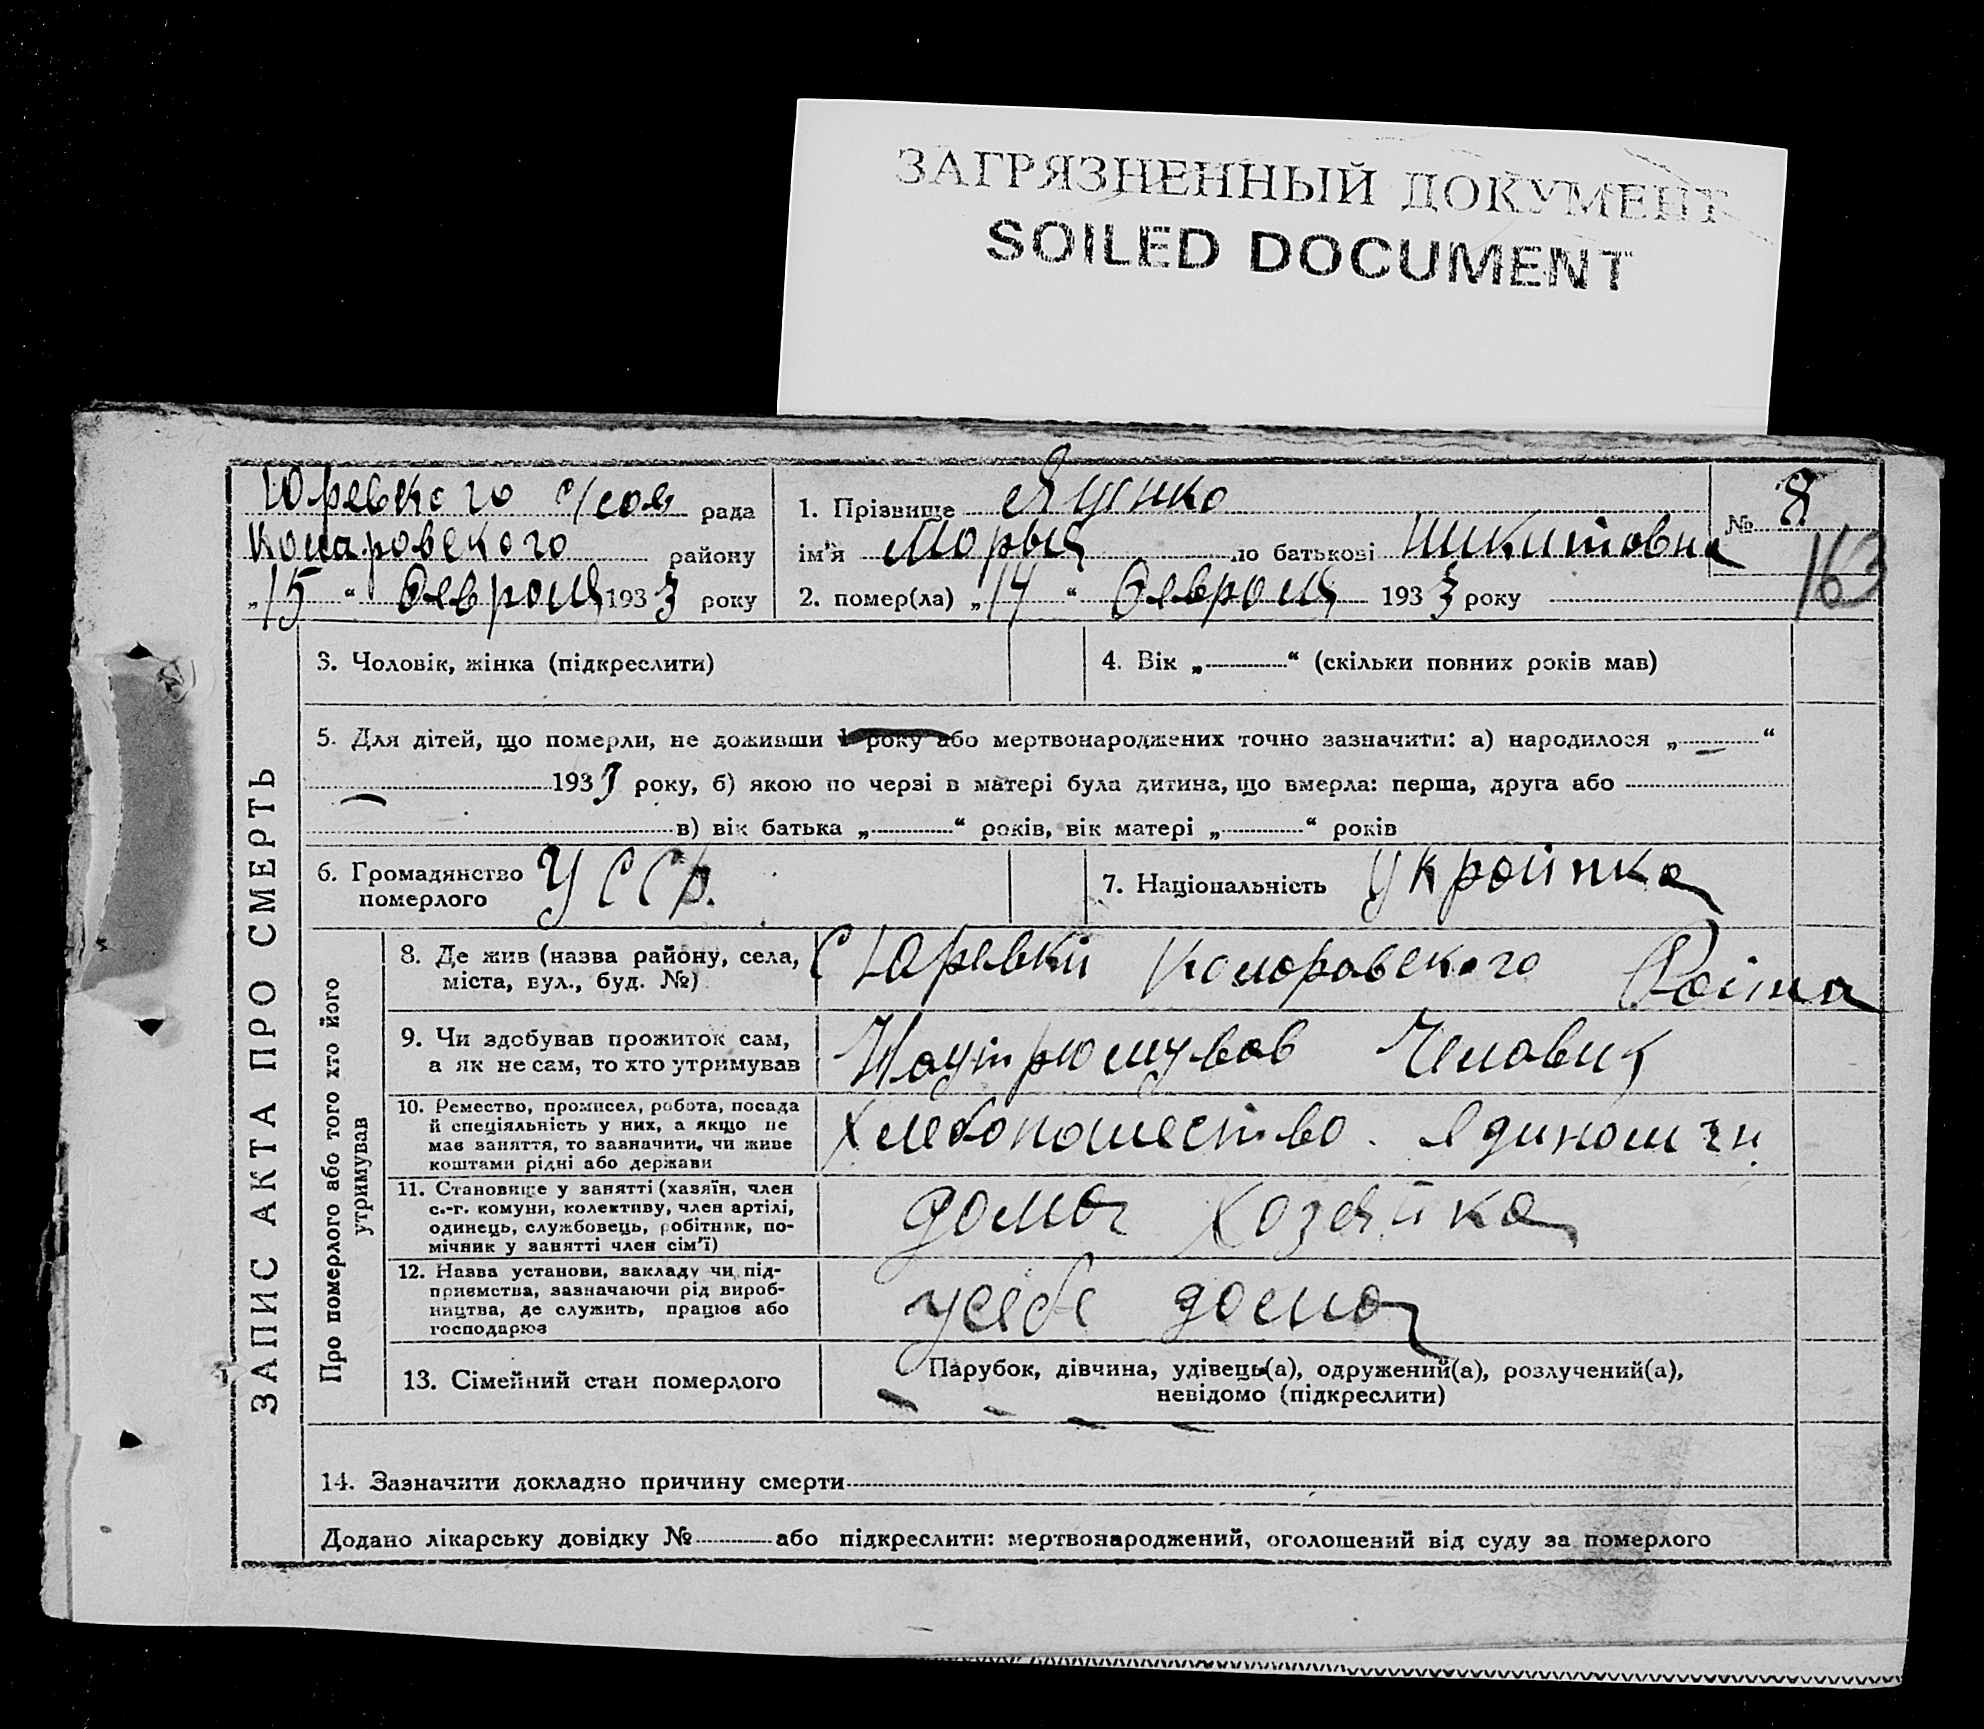 ЗАГРЯЗНЕННЫЙ ДОКУМЕНТ
SOILED DOCUMENT
Юревкого с/сов рада
Комаровского району
„15“ Февроля 1933 року
1. Прізвище Яценко
ім'я Морыя по батькові Микитовна
№ 8
163
2. помер(ла) „14“ Февроля 1933 року
ЗАПИС АКТА ПРО СМЕРТЬ
3. Чоловік, жінка (підкреслити)
4. Вік „ “ (скільки повних років мав)
5. Для дітей, що померли, не доживши 1 року або мертвонароджених точно зазначити: а) народилося „ “
1933 року, б) якою по черзі в матері була дитина, що вмерла: перша, друга або
в) вік батька „ “ років, вік матері „ “ років
6. Громадянство померлого УССР.
7. Національність Укроинка
Про померлого або того хто його утримував
8. Де жив (назва району, села,
міста, вул., буд. №)
С Юревки Коморовского Роіина
9. Чи здобував прожиток сам,
а як не сам, то хто утримував
Человик
10. Ремество, промисел, робота, посада
й спеціяльність у них, а якщо не
мав заняття, то зазначити, чи живе
коштами рідні або держави
Хлебопошество. Ядинолични
11. Становище у занятті (хазяїн, член
с.-г. комуни, колективу, член артілі,
одинець, службовець, робітник, по-
мічник у занятті член сім'ї)
дома хозяйка
12. Назва установи, закладу чи під-
приємства, зазначаючи рід вироб-
ництва, де служить, працює або
господарює
усебе дома
13. Сімейний стан померлого
Парубок, дівчина, удівець(а), одружений(а), розлучений(а),
невідомо (підкреслити)
14. Зазначити докладно причину смерти
Додано лікарську довідку № або підкреслити: мертвонароджений, оголошений від суду за померлого